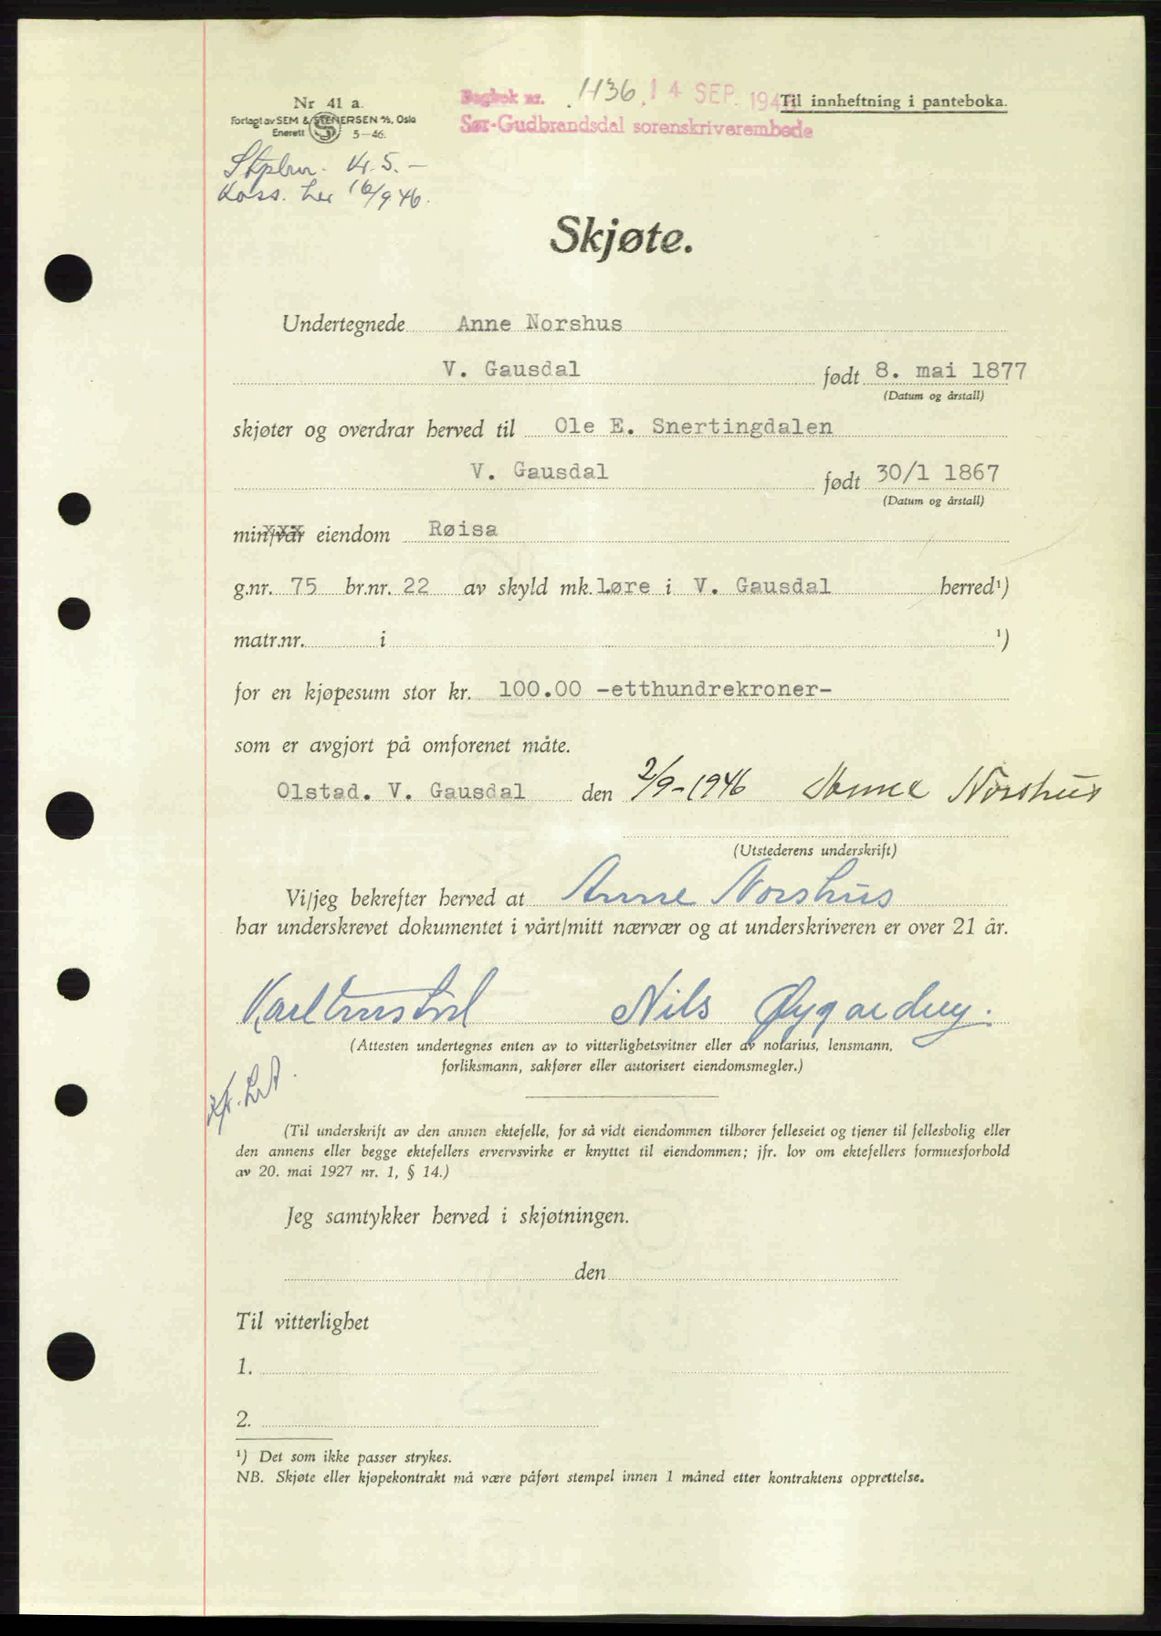 Nr 41 a.
Forlagt av SEM & STENERSEN A/S, Oslo
Enerett 5-46.
Dagbok nr. 1136, 14 SEP. 194
Til innheftning i panteboka.
Sør-Gudbrandsdal sorenskriverembede
Kr. 5.-
Kass. her 16/9 46.
Skjøte.
Undertegnede Anne Norshus
V. Gausdal født 8. mai 1877
(Datum og årstall)
skjøter og overdrar herved til Ole E. Snertingdalen
V. Gausdal født 30/1 1867
(Datum og årstall)
min/vår eiendom Røisa
g.nr. 75 br.nr. 22 av skyld mk. 1øre i V. Gausdal herred¹)
matr.nr. i ¹)
for en kjøpesum stor kr. 100.00 -etthundrekroner-
som er avgjort på omforenet måte.
Olstad. V. Gausdal den 2/9-1946 Anne Norshus
(Utstederens underskrift)
Vi/jeg bekrefter herved at Anne Norshus
har underskrevet dokumentet i vårt/mitt nærvær og at underskriveren er over 21 år.
Nils
(Attesten undertegnes enten av to vitterlighetsvitner eller av notarius, lensmann,
forliksmann, sakfører eller autorisert eiendomsmegler.)
(Til underskrift av den annen ektefelle, for så vidt eiendommen tilhører felleseiet og tjener til fellesbolig eller
den annens eller begge ektefellers ervervsvirke er knyttet til eiendommen; jfr. lov om ektefellers formuesforhold
av 20. mai 1927 nr. 1, § 14.)
Jeg samtykker herved i skjøtningen.
den
Til vitterlighet
1.
2.
¹) Det som ikke passer strykes.
NB. Skjøte eller kjøpekontrakt må være påført stempel innen 1 måned etter kontraktens opprettelse.